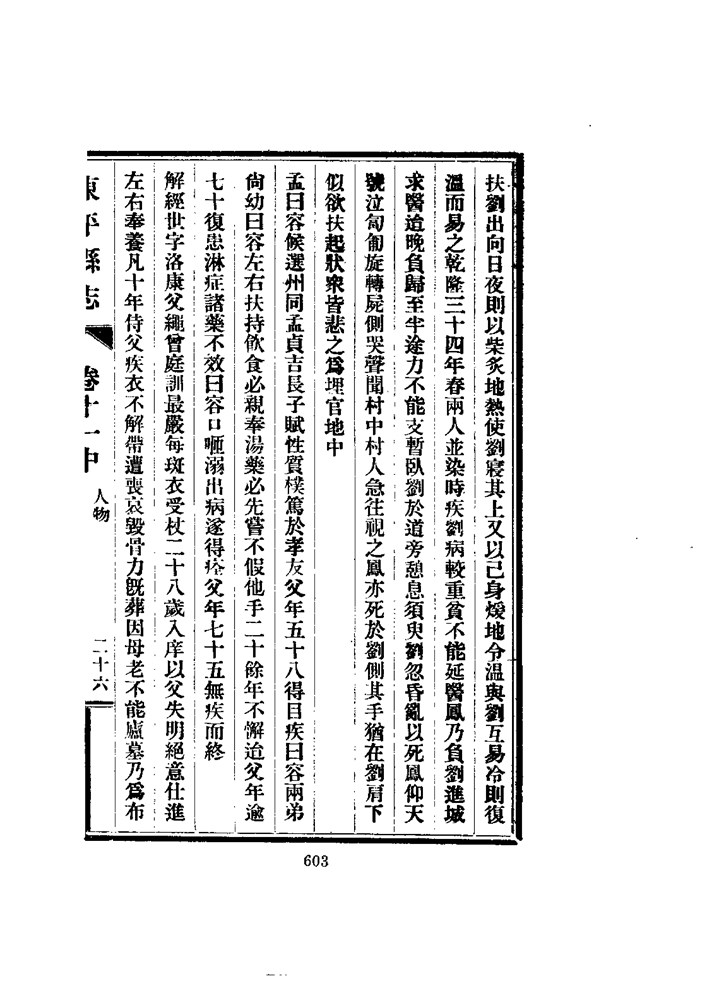 扶劉出向日夜則以柴炙地熱使劉寢其上又以己身煖地令溫與劉互易冷則復
溫而易之乾隆三十四年春兩人並染時疾劉病較重貧不能延醫鳳乃負劉進城
求醫迨晚負歸至半途力不能支暫臥劉於道旁憩息須臾劉忽昏亂以死鳳仰天
號泣匍匐旋轉屍側哭聲聞村中村人急往視之鳳亦死於劉側其手猶在劉肩下
似欲扶起狀衆皆悲之爲埋官地中
孟曰容候選州同孟貞吉長子賦性質樸篤於孝友父年五十八得目疾曰容兩弟
尙幼曰容左右扶持飲食必親奉湯藥必先嘗不假他手二十餘年不懈迨父年逾
七十復患淋症諸藥不效曰容口咂溺出病遂得痊父年七十五無疾而終
解經世字洛康父繩曾庭訓最嚴每斑衣受杖二十八歲入庠以父失明絕意仕進
左右奉養凡十年侍父疾衣不解帶遭喪哀毀骨力旣葬因母老不能廬墓乃爲布
東平縣志 卷十一中 人物 二十六
603